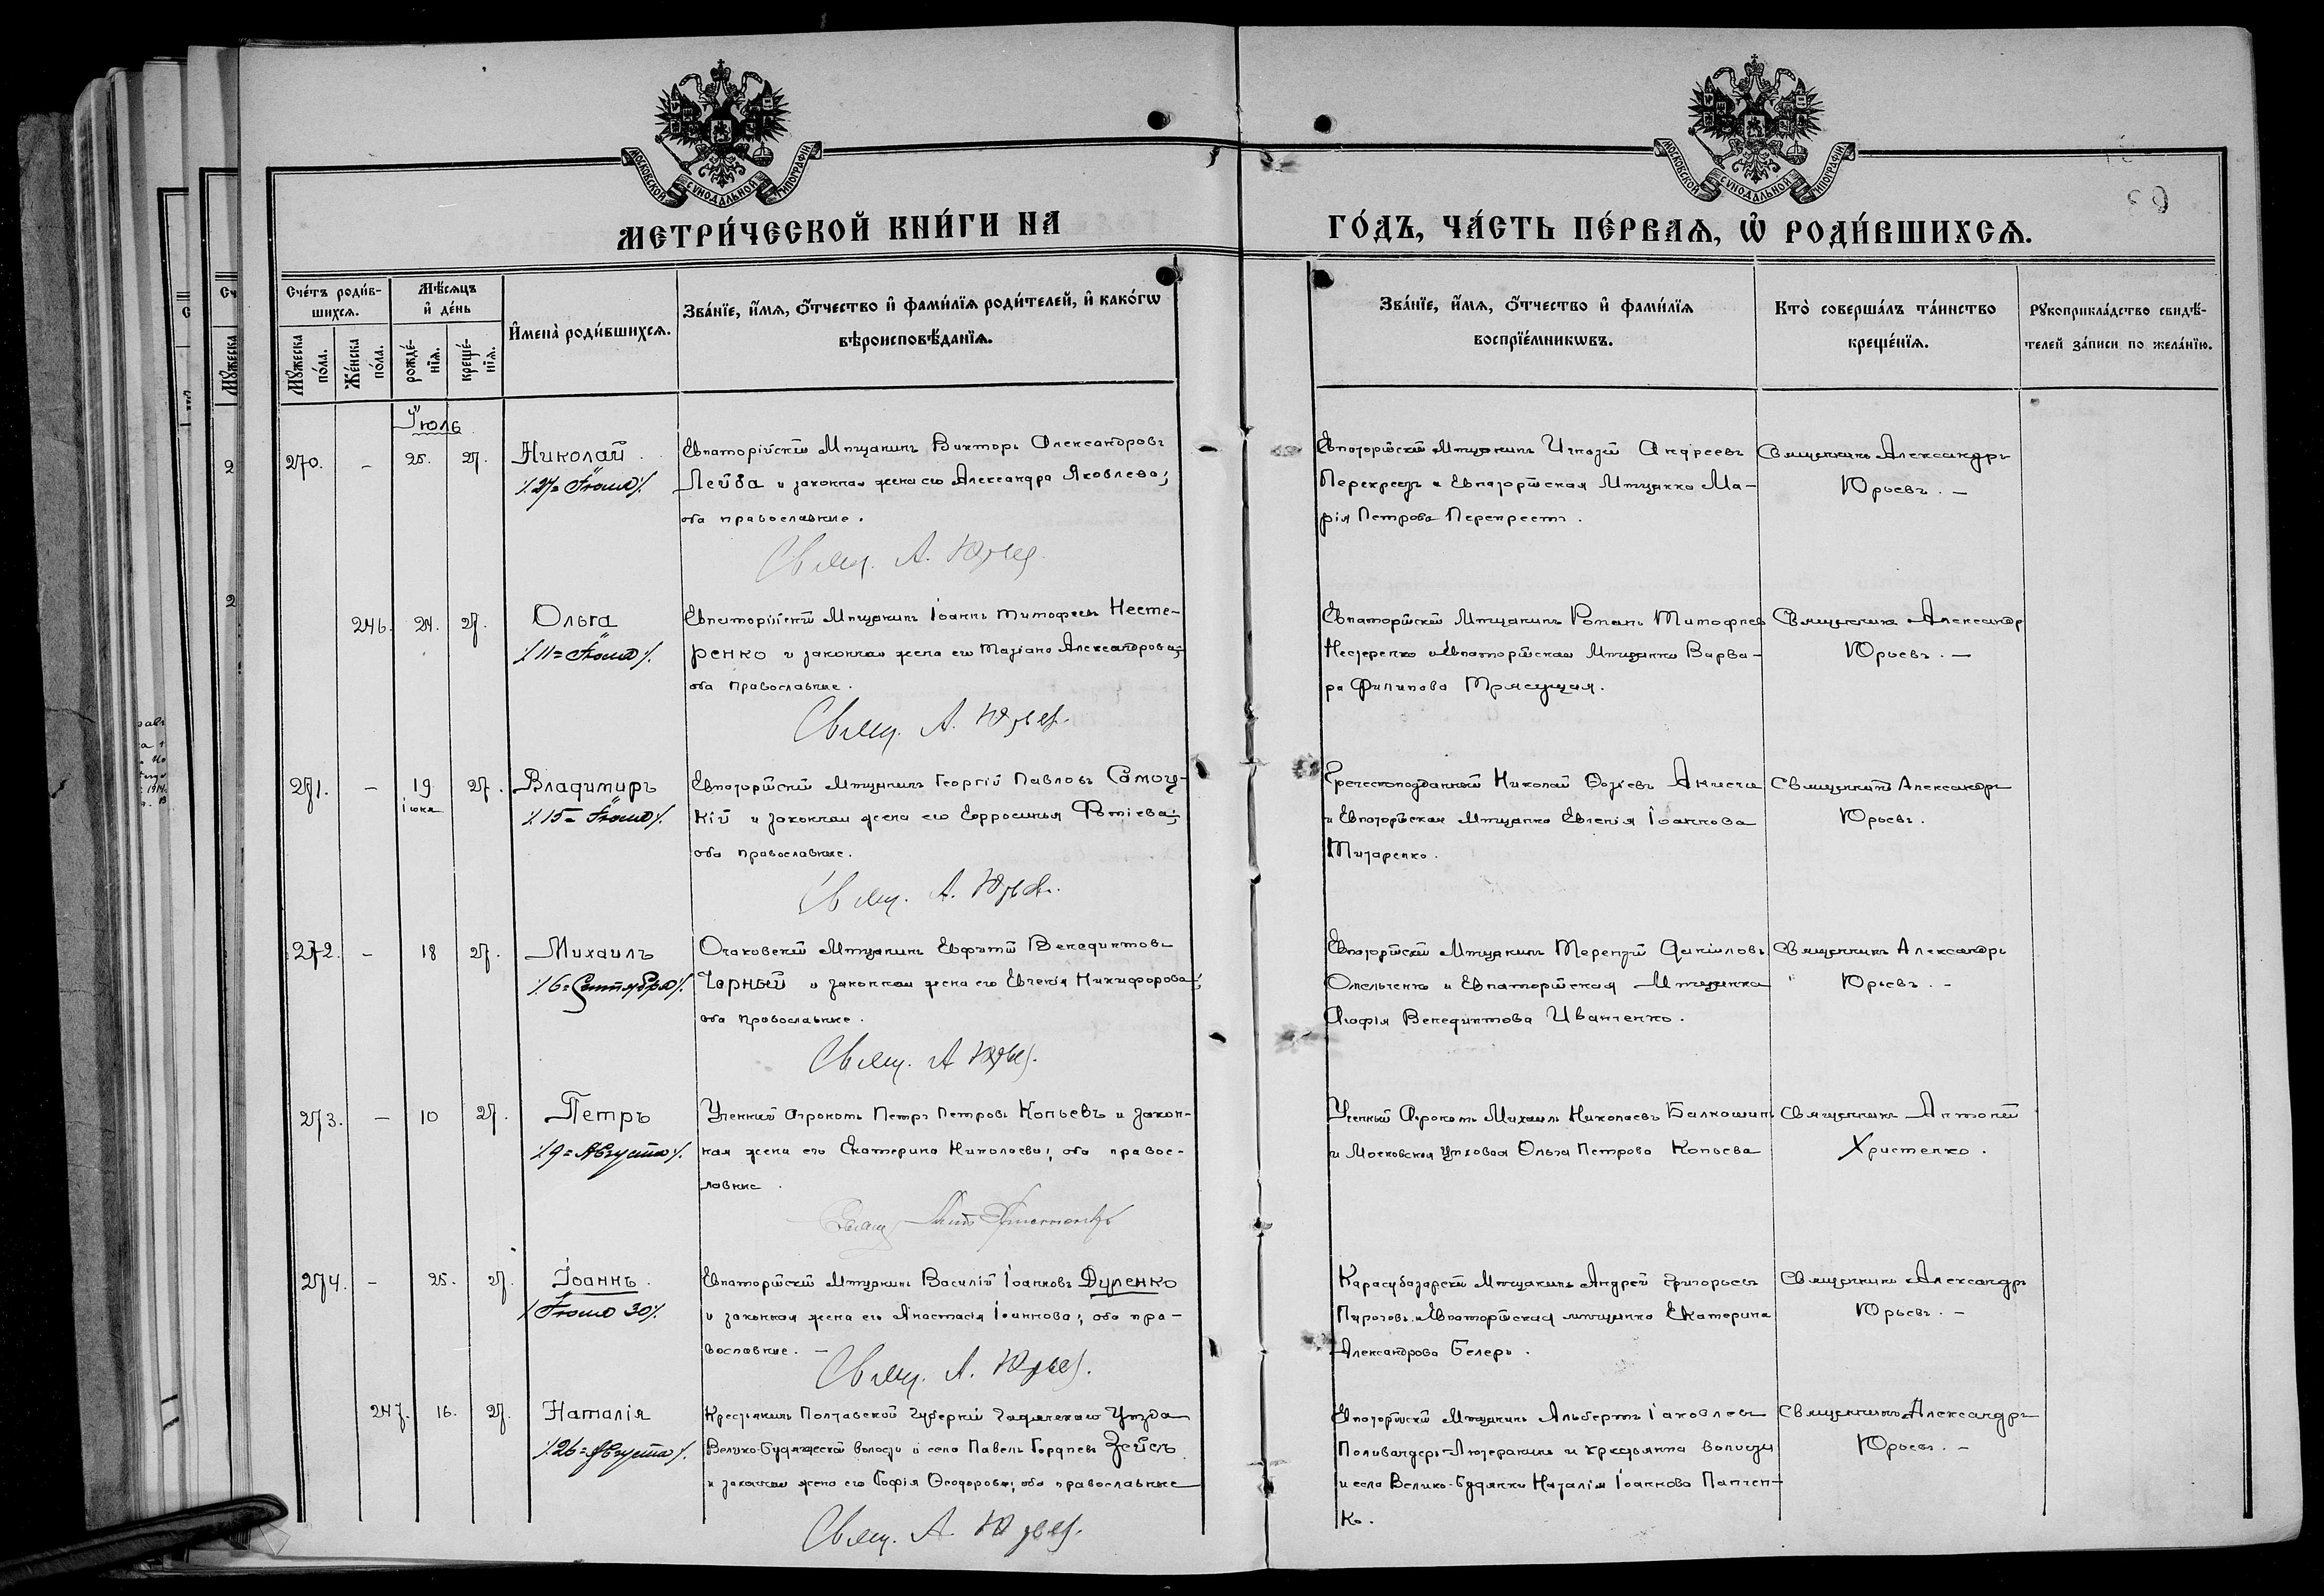 МОСКОВСКОЙ СѴНОДАЛЬНОЙ ТИПОГРАФІИ
МОСКОВСКОЙ СѴНОДАЛЬНОЙ ТИПОГРАФІИ
МЕТРИ́ЧЕСКОЙ КНИ́ГИ НА
ГО́ДЪ, ЧА́СТЬ ПЕ́РВАѦ, Ѽ РОДИ́ВШИХСѦ.
Сче́тъ роди́в-
шихсѧ.
Мꙋжеска по́ла.
Же́нска по́ла.
Мѣ́сѧцъ
и҆ де́нь
рожде́-
нїѧ.
креще́-
нїѧ.
И҆мена̀ роди́вшихсѧ.
Зва́нїе, и҆́мѧ, ѻ҆́тчество и҆ фами́лїѧ роди́телей, и҆ како́гѡ
вѣроисповѣ́данїѧ.
Зва́нїе, и҆́мѧ, ѻ҆́тчество и҆ фами́лїѧ
воспрїе́мникѡвъ.
Кто̀ соверша́лъ та́инство
креще́нїѧ.
Рꙋкоприкла́дство свидѣ́-
телей за́писи по жела́нїю.
Іюль
270. - 25. 27. Николай.
/. 27= Іюля /.
Евпаторійскій Мѣщанинъ Викторъ Александровъ
Лейба и законная жена его Александра Яковлева;
оба православные.
Свящ. А. Юрьев.
Евпаторійскій Мѣщанинъ Игнатій Андреевъ
Перекрестъ и Евпаторійская Мѣщанка Ма-
рія Петрова Перекрестъ.
Священникъ Александръ
Юрьевъ. -
246. 24. 27. Ольга
/. 11= Іюля /.
Евпаторійскій Мѣщанинъ Іоаннъ Тимофеевъ Несте-
ренко и законная жена его Татіана Александрова;
оба православные.
Свящ. А. Юрьев.
Евпаторійскій Мѣщанинъ Романъ Тимофеев
Нестеренко и Евпаторійская Мѣщанка Варва-
ра Филипова Трясущая.
Священникъ Александр
Юрьевъ. -
271. - 19 іюня 27. Владимиръ
/. 15= Іюля /.
Евпаторійскій Мѣщанинъ Георгій Павловъ Самоц-
кій и законная жена его Ефросинья Фотіева;
оба православные.
Свящ. А. Юрьев.
Греческоподданный Николай
и Евпаторійская Мѣщанка Евгенія Іоаннова
Титаренко.
Священникъ Александръ
Юрьевъ.
272. - 18 27. Михаилъ
/. 6= Сентября /.
Очаковскій Мѣщанинъ Евфимій Венедиктовъ
Чорный и законная жена его Евгенія Никифорова;
оба православные.
Свящ. А Юрьев.
Евпаторійскій Мѣщанинъ Терентій Даніиловъ
Омельченко и Евпаторійская Мѣщанка
Софія Венедиктова Иванченко.
Священникъ Александръ
Юрьевъ. -
273. - 10 27. Петръ
/. 9= Августа /.
Ученный Агрономъ Петръ Петровъ Копьевъ и закон-
ная жена его Екатерина Николаева; оба правос-
лавные.
Ученный Агрономъ Михаилъ Николаевъ Балкошин
и Московская Ольга Петрова Копьева
Священникъ Антоній
Христенко.
274. - 25. 27. Іоаннъ.
/ Іюля 30 /.
Евпаторійскій Мѣщанинъ Василій Іоанновъ Дуленко
и законная жена его Анастасія Іоаннова; оба пра-
вославные. -
Свящ. А. Юрьев.
Карасубазарскій Мѣщанинъ Андрей Григорьевъ
Пироговъ и Евпаторійская мѣщанка Екатерина
Александрова Белеръ.
Священникъ Александръ
Юрьевъ. -
247. 16. 27. Наталія
/. 26= Августа /.
Крестьянинъ Полтавской Губерніи Гадячскаго Уѣзда
Велико-Будищской волости и села Павелъ Гордеевъ Зейсъ
и законная жена его Софія Ѳеодорова; оба православные
Свящ. А. Юрьев.
Евпаторійскій Мѣщанинъ Альбертъ Іаковлевъ
Поливандеръ-Лютеранинъ и крестьянка волости
и села Велико-Будянки Наталія Іоаннова Панчен-
ко.
Священникъ Александръ
Юрьевъ. -